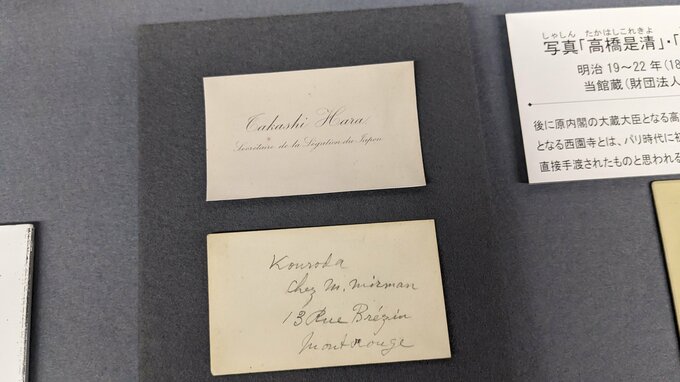 Takashi Hara
Secrétaire de la Légation du Japon
Kouroda
Chez M. Mirman
13 Rue Brézin
Montrouge
しゃしん たかはしこれきよ
写真「高橋是清」・「
明治 19～22 年(18
当館蔵(財団法人
後に原内閣の大蔵大臣となる高
となる西園寺とは、パリ時代に初
直接手渡されたものと思われる